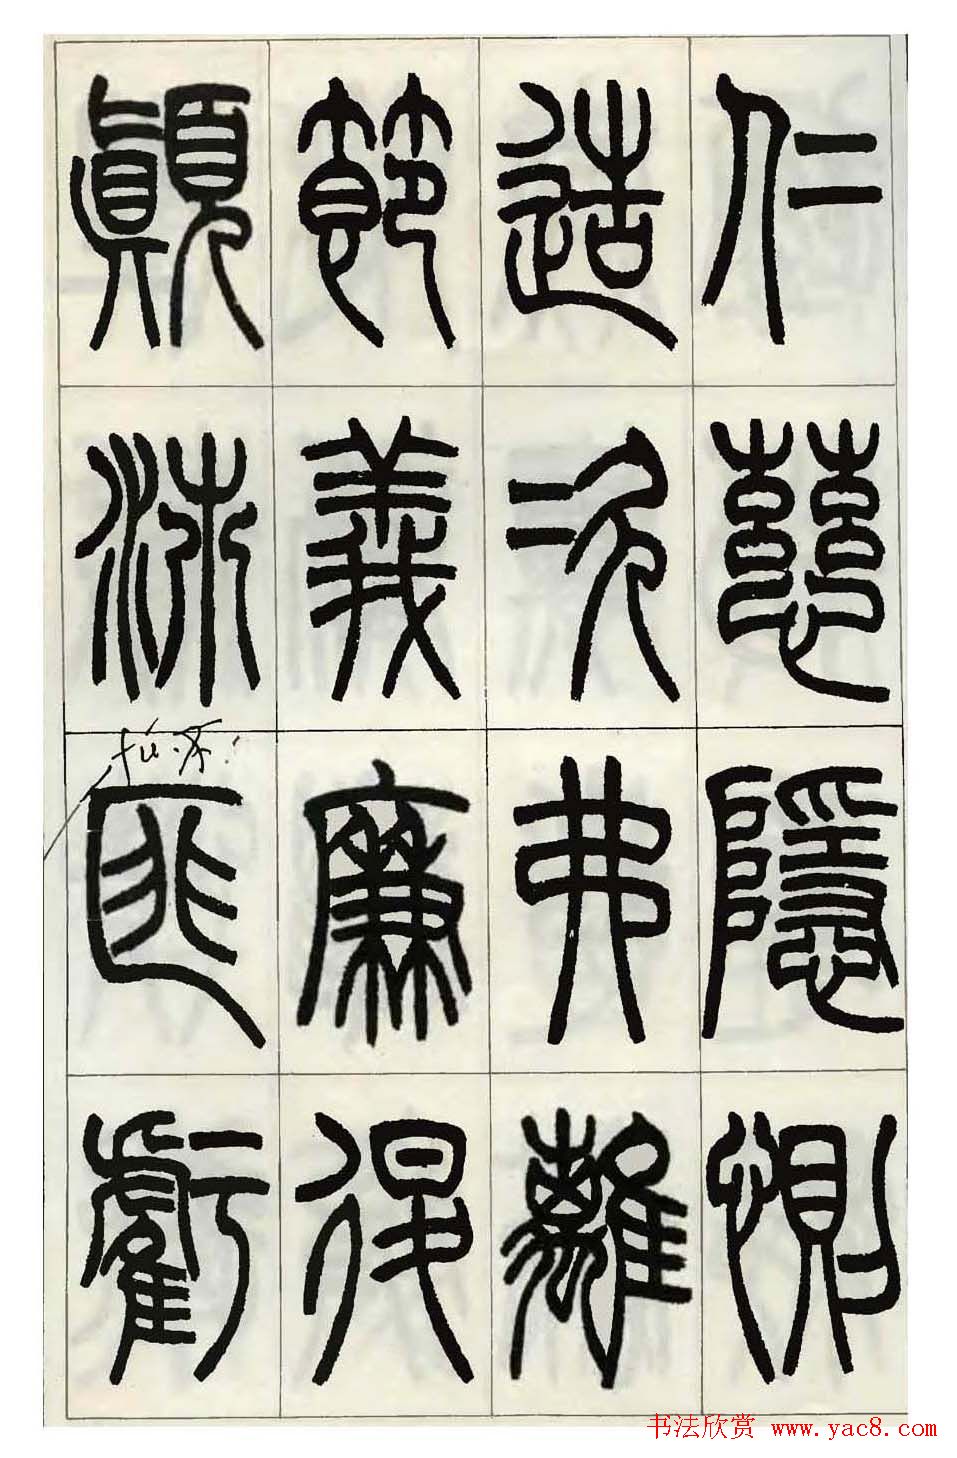 仁慈隱惻
造次弗離
節義廉退
顛沛匪虧
书法欣赏 www.yac8.com